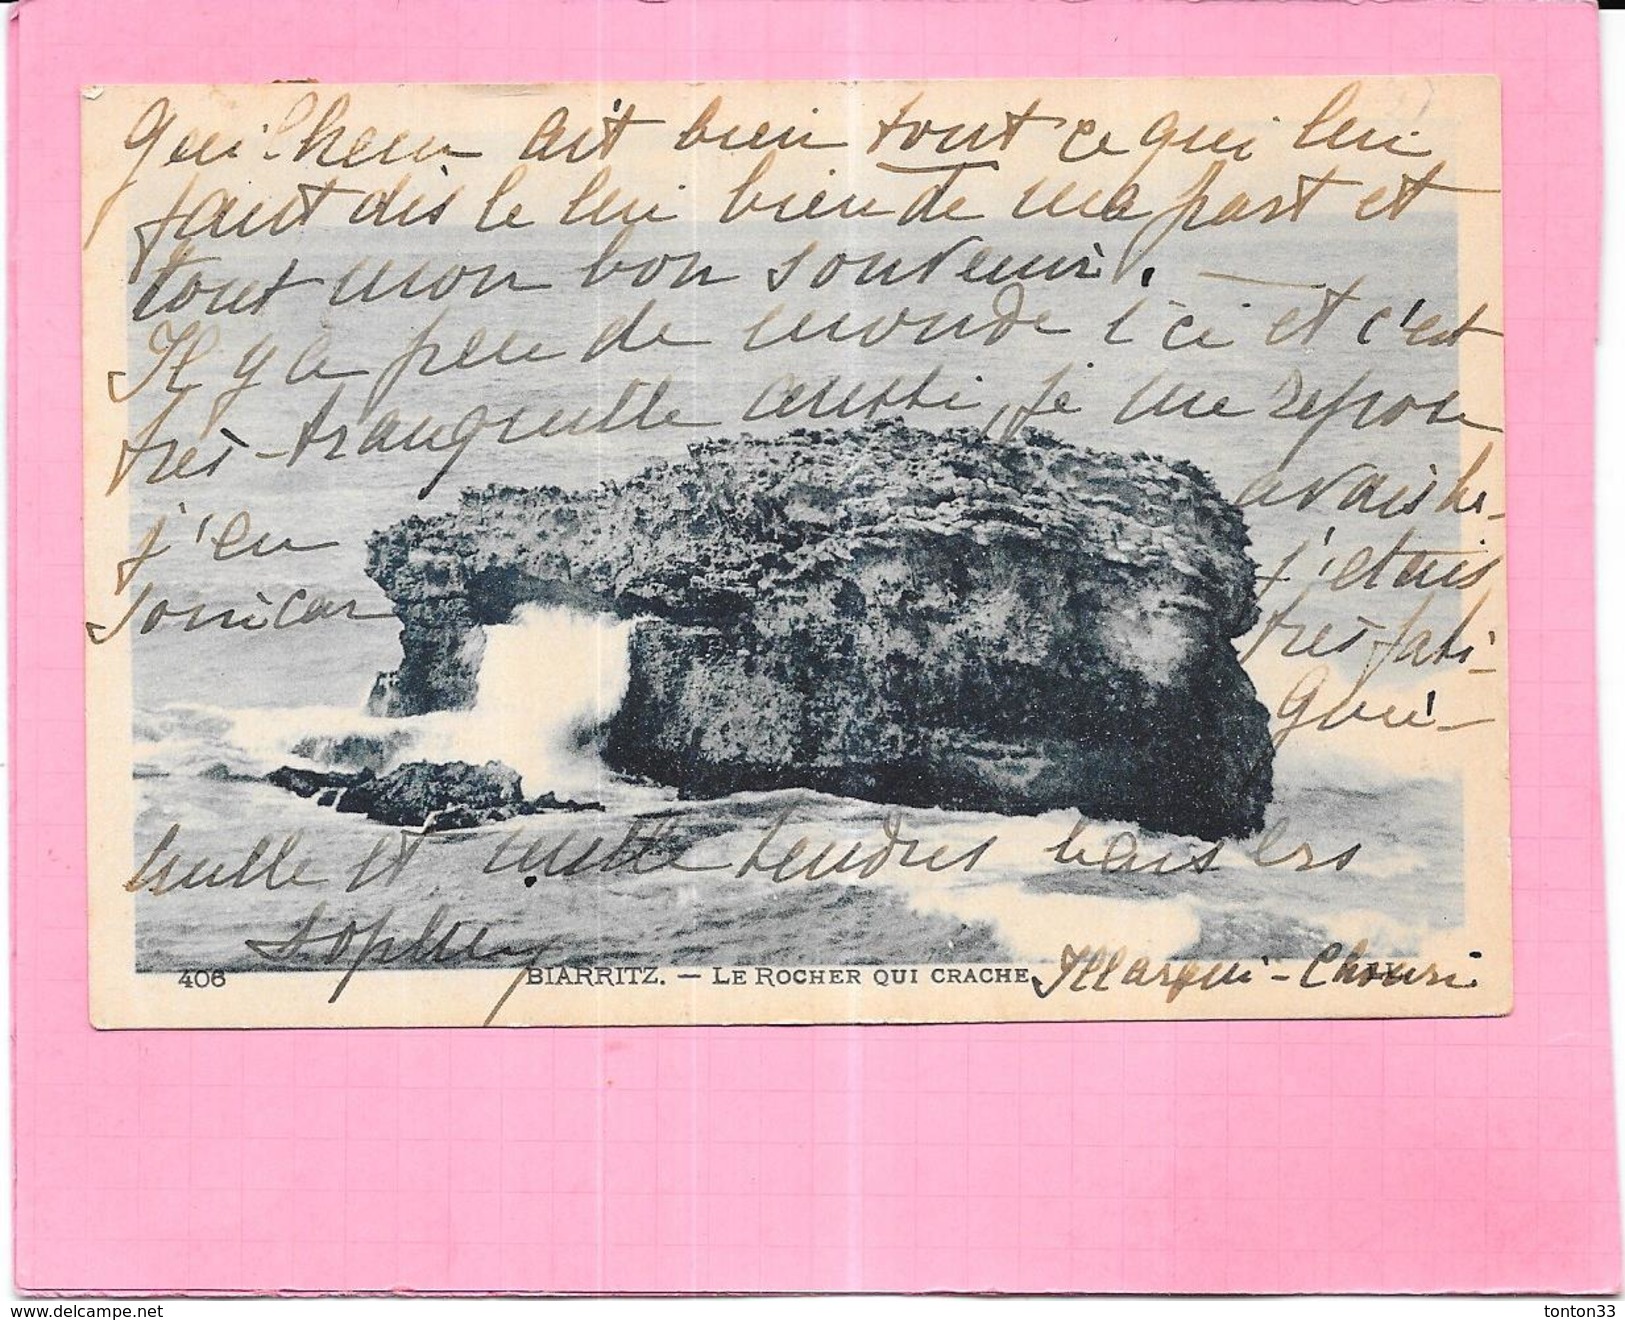 Guilhem ait bien tout ce qui lui
faut dis le lui bien de ma part et
tout mon bon souvenir. —
Il y a peu de monde ici et c'est
très-tranquille aussi, je me repose
j'en avais be-
soin car j'étais
très-fati-
guée
mille et mille tendres baisers
Sophie
408 BIARRITZ. — LE ROCHER QUI CRACHE
www.delcampe.net tonton33